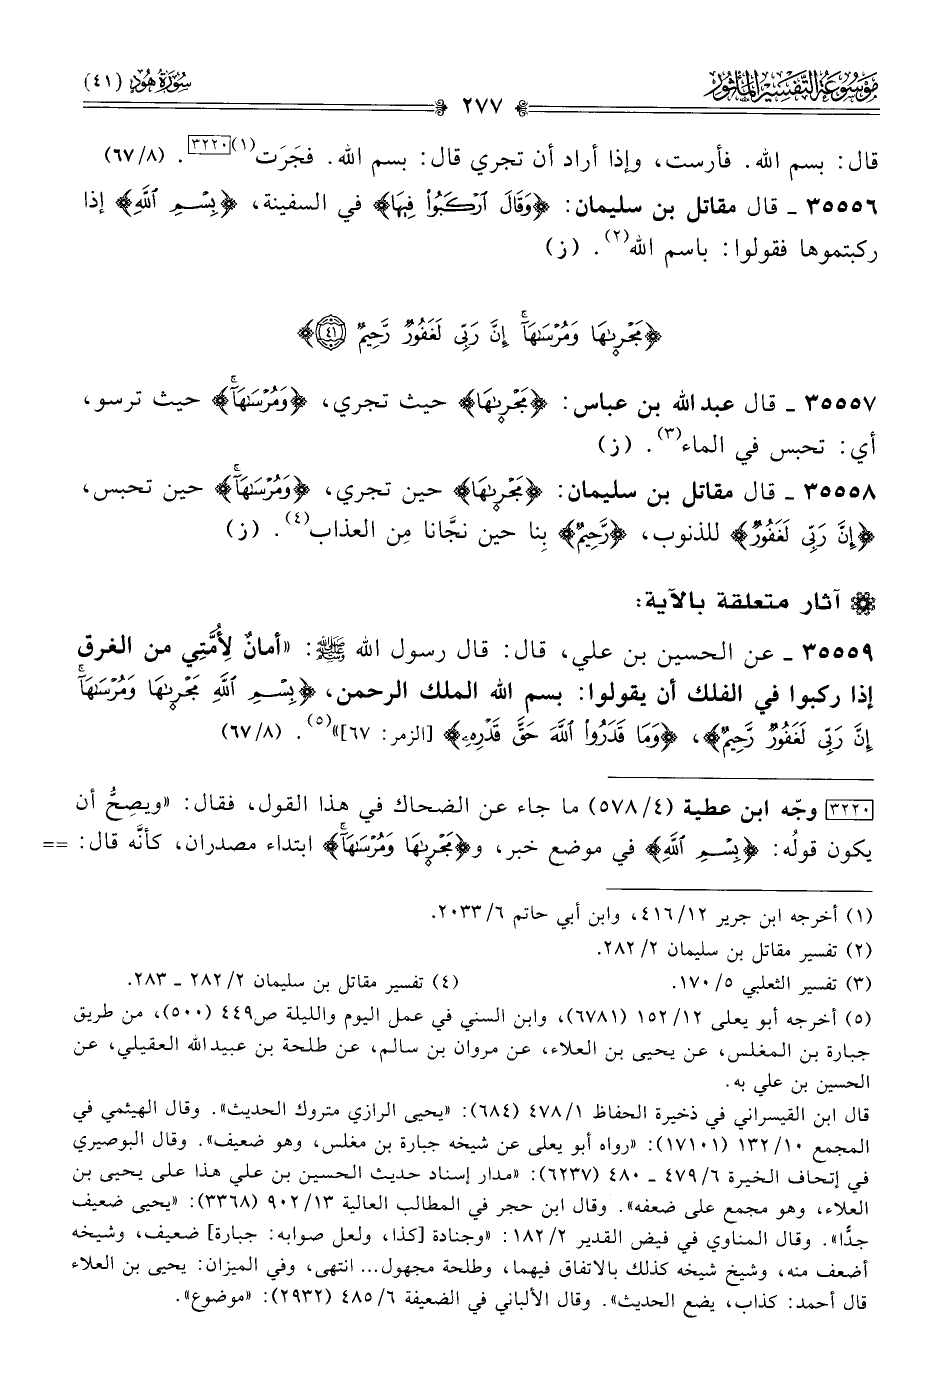 موسوعة التفسير المأثور
٢٧٧
سورة هود (٤١)
قال: بسم الله. فأرست، وإذا أراد أن تجري قال: بسم الله. فجَرَت(١)[٣٢٢٠]. (٦٧/٨)
٣٥٥٥٦ ـ قال مقاتل بن سليمان: ﴿وَقَالَ ٱرْكَبُوا۟ فِيهَا﴾ في السفينة، ﴿بِسْمِ ٱللَّهِ﴾ إذا
ركبتموها فقولوا: باسم الله(٢). (ز)
﴿مَجْر۪ىٰهَا وَمُرْسَىٰهَآ ۚ إِنَّ رَبِّى لَغَفُورٌ رَّحِيمٌ ٤١﴾
٣٥٥٥٧ ـ قال عبد الله بن عباس: ﴿مَجْر۪ىٰهَا﴾ حيث تجري، ﴿وَمُرْسَىٰهَآ ۚ﴾ حيث ترسو،
أي: تحبس في الماء(٣). (ز)
٣٥٥٥٨ ـ قال مقاتل بن سليمان: ﴿مَجْر۪ىٰهَا﴾ حين تجري، ﴿وَمُرْسَىٰهَآ ۚ﴾ حين تحبس،
﴿إِنَّ رَبِّى لَغَفُورٌ﴾ للذنوب، ﴿رَّحِيمٌ﴾ بِنا حين نجَّانا مِن العذاب(٤). (ز)
آثار متعلقة بالآية:
٣٥٥٥٩ ـ عن الحسين بن علي، قال: قال رسول الله ﷺ: «أمانٌ لِأُمَّتِي من الغرق
إذا ركبوا في الفلك أن يقولوا: بسم الله الملك الرحمن، ﴿بِسْمِ ٱللَّهِ مَجْر۪ىٰهَا وَمُرْسَىٰهَآ ۚ
إِنَّ رَبِّى لَغَفُورٌ رَّحِيمٌ﴾، ﴿وَمَا قَدَرُوا۟ ٱللَّهَ حَقَّ قَدْرِهِۦ﴾ [الزمر: ٦٧]»(٥). (٦٧/٨)
[٣٢٢٠] وجّه ابن عطية (٥٧٨/٤) ما جاء عن الضحاك في هذا القول، فقال: «ويصِحُّ أن
يكون قولُه: ﴿بِسْمِ ٱللَّهِ﴾ في موضع خبر، و﴿مَجْر۪ىٰهَا وَمُرْسَىٰهَآ ۚ﴾ ابتداء مصدران، كأنَّه قال: ==
(١) أخرجه ابن جرير ٤١٦/١٢، وابن أبي حاتم ٢٠٣٣/٦.
(٢) تفسير مقاتل بن سليمان ٢٨٢/٢.
(٣) تفسير الثعلبي ١٧٠/٥. (٤) تفسير مقاتل بن سليمان ٢٨٢/٢ ـ ٢٨٣.
(٥) أخرجه أبو يعلى ١٥٢/١٢ (٦٧٨١)، وابن السني في عمل اليوم والليلة ص٤٤٩ (٥٠٠)، من طريق
جبارة بن المغلس، عن يحيى بن العلاء، عن مروان بن سالم، عن طلحة بن عبيد الله العقيلي، عن
الحسين بن علي به.
قال ابن القيسراني في ذخيرة الحفاظ ٤٧٨/١ (٦٨٤): «يحيى الرازي متروك الحديث». وقال الهيثمي في
المجمع ١٣٢/١٠ (١٧١٠١): «رواه أبو يعلى عن شيخه جبارة بن مغلس، وهو ضعيف». وقال البوصيري
في إتحاف الخيرة ٤٧٩/٦ ـ ٤٨٠ (٦٢٣٧): «مدار إسناد حديث الحسين بن علي هذا على يحيى بن
العلاء، وهو مجمع على ضعفه». وقال ابن حجر في المطالب العالية ٩٠٢/١٣ (٣٣٦٨): «يحيى ضعيف
جدًّا». وقال المناوي في فيض القدير ١٨٢/٢: «وجنادة [كذا، ولعل صوابه: جبارة] ضعيف، وشيخه
أضعف منه، وشيخ شيخه كذلك بالاتفاق فيهما، وطلحة مجهول... انتهى، وفي الميزان: يحيى بن العلاء
قال أحمد: كذاب، يضع الحديث». وقال الألباني في الضعيفة ٤٨٥/٦ (٢٩٣٢): «موضوع».